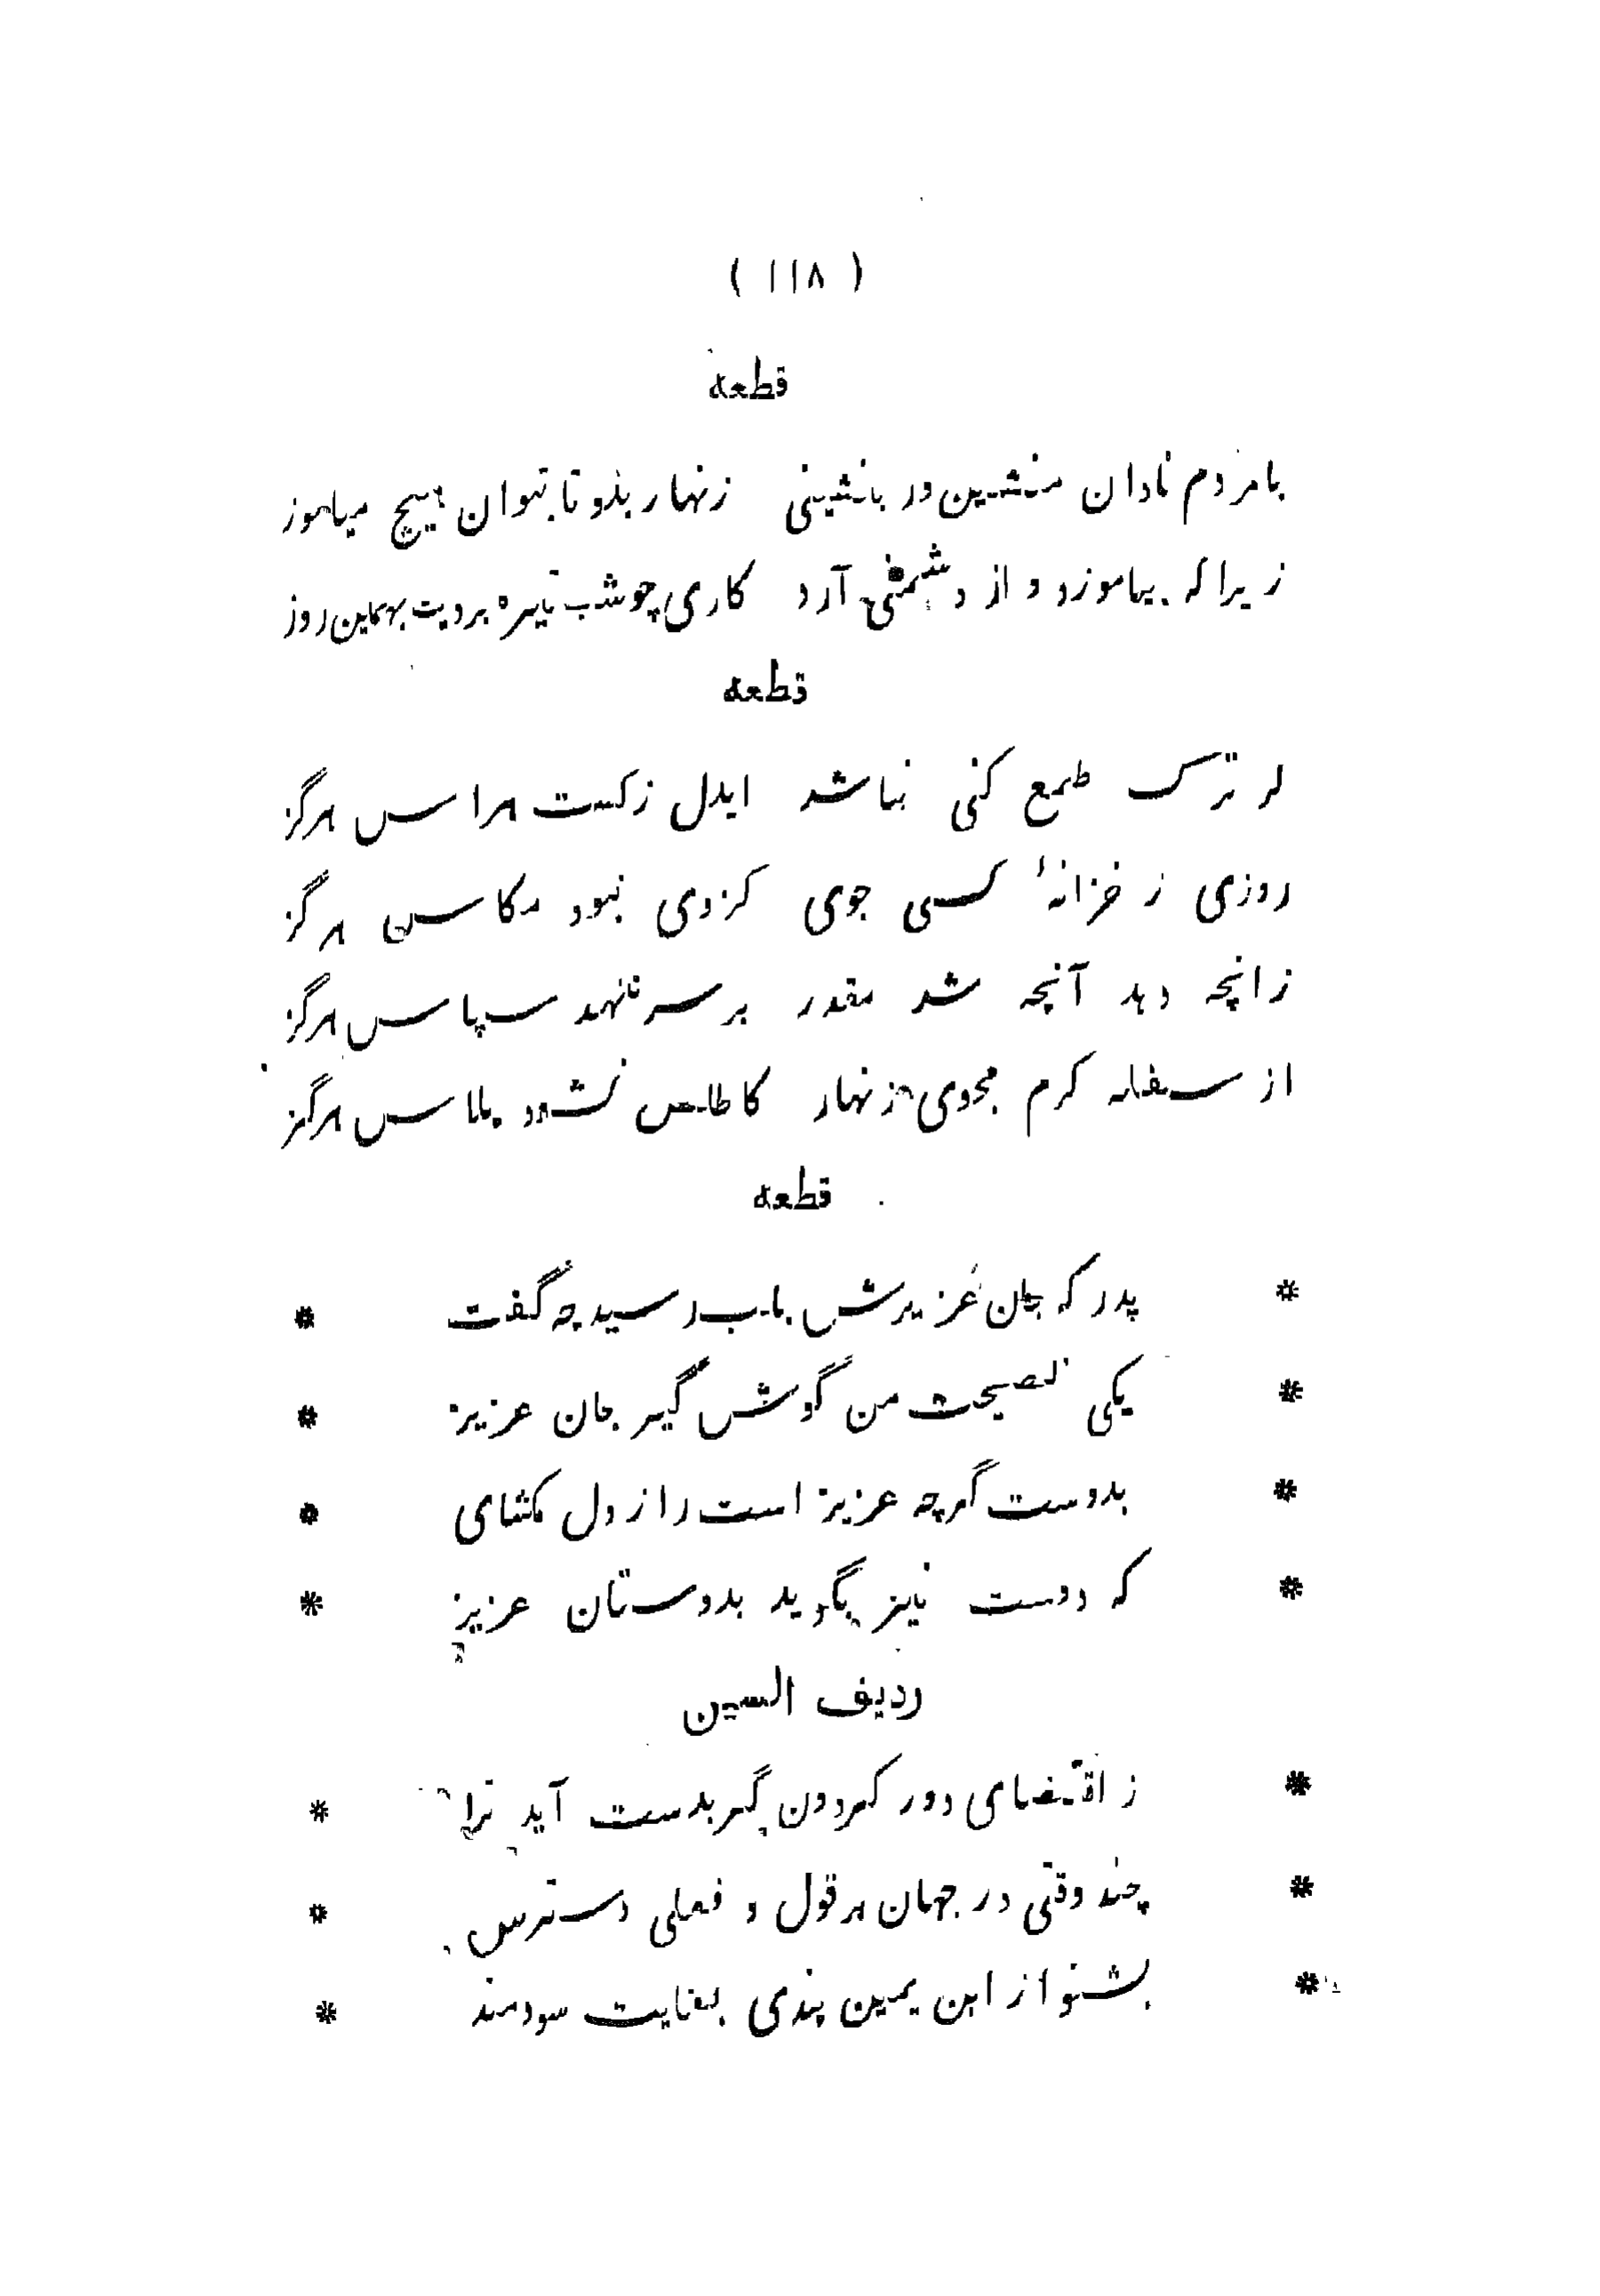 ( ۱۱۸ )
قطعه
بامردم نادان منشین ور بانشینی زنهار بدو تا بتوان هیچ میاموز
زیرا که بیاموزد و از دشمنی آرد کاری چو شب تیره برویت بهمین روز
قطعه
ار ترک طمع کنی نباشد ایدل زکست هراس هرگز
روزی ز خزانهٔ کسی جوی کزوی نبود مکاس هرگز
زانچه دهد آنچه شد مقدر بر سر ننهد سپاس هرگز
از سفله کرم مجوی زنهار کاطلس نشود پلاس هرگز
قطعه
* پدر که جان عزیزش بلب رسید چه گفت *
* یکی نصیحت من گوش گیر جان عزیز *
* بدوست گرچه عزیز است راز دل مگشای *
* که دوست نیز بگوید بدوستان عزیز *
ردیف السین
* ز اقتضای دور گردون گر بدست آید ترا *
* چند وقتی در جهان بر قول و فعلی دسترس *
* بشنو از ابن یمین پندی بغایت سودمند *